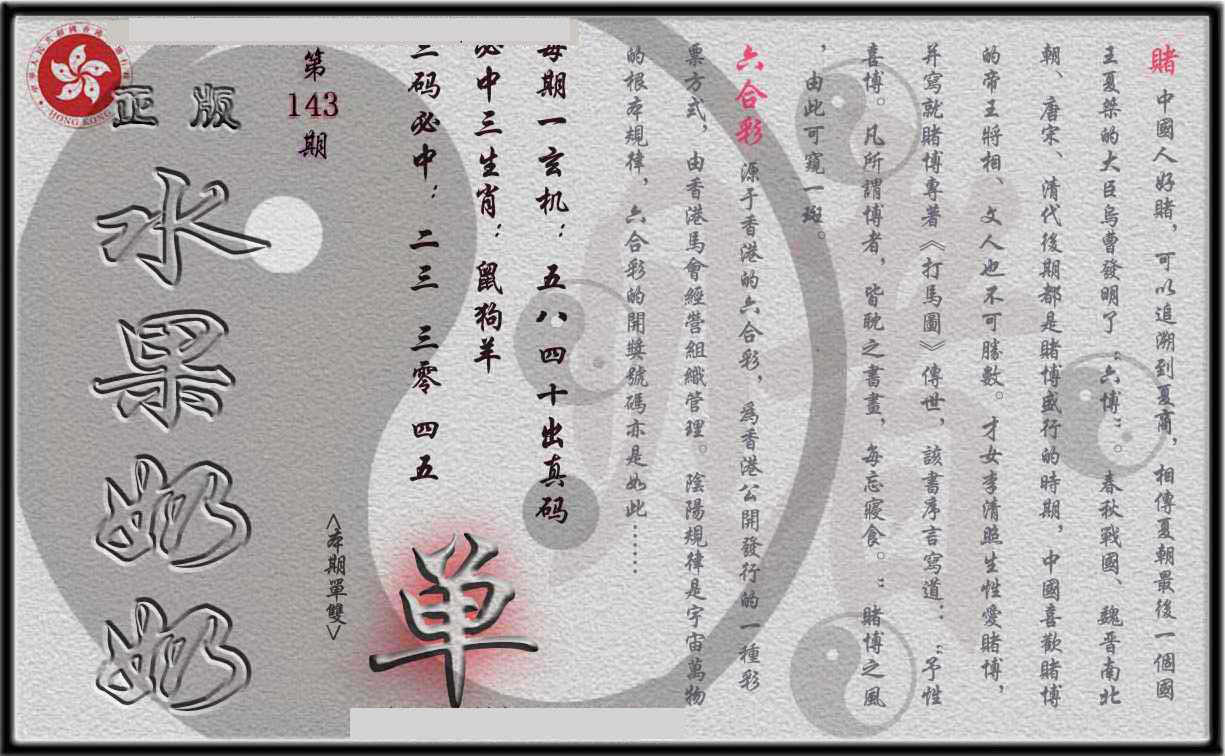 賭 中國人好賭，可以追溯到夏商，相傳夏朝最後一個國
王夏桀的大臣烏曹發明了“六博”。春秋戰國、魏晋南北
朝、唐宋、清代後期都是賭博盛行的時期，中國喜歡賭博
的帝王將相、文人也不可勝數。才女李清照生性愛賭博，
并寫就賭博專著《打馬圖》傳世，該書序言寫道：“予性
喜博。凡所謂博者，皆耽之書畫，每忘寢食。“賭博之風
，由此可窺一斑。
六合彩 源于香港的六合彩，爲香港公開發行的一種彩
票方式，由香港馬會經營組織管理。陰陽規律是宇宙萬物
的根本規律，六合彩的開獎號碼亦是如此……
每期一玄机：五八四十出真码
必中三生肖：鼠狗羊
三码必中：二三 三零 四五
单
<本期單雙>
第
143
期
正版
水果奶奶
HONG KONG